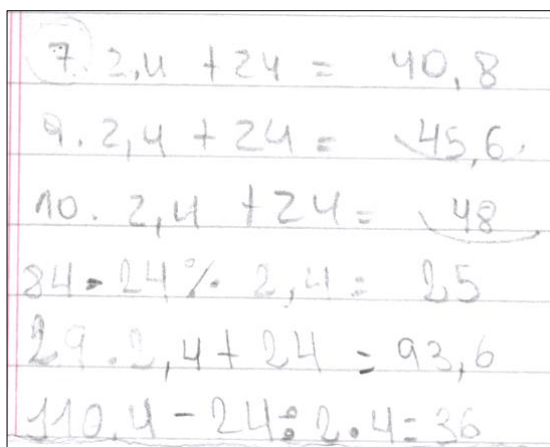 7. 2,4 + 24 = 40,8
9. 2,4 + 24 = 45,6
10. 2,4 + 24 = 48
84 - 24 % 2,4 = 25
29. 2,4 + 24 = 93,6
110.4 - 24 : 2.4 = 36